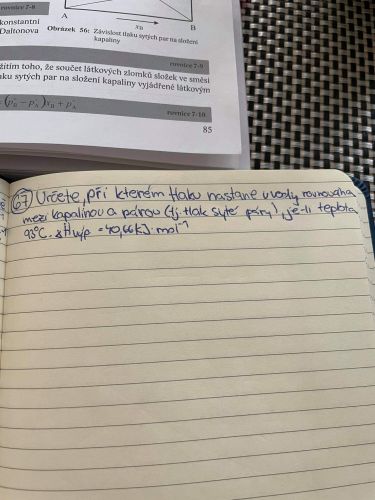 rovnice 7-8
konstantní
Daltonova
A
xB
B
Obrázek 56: Závislost tlaku sytých par na složení
kapaliny
rovnice 7-9
žitím toho, že součet látkových zlomků složek ve směsi
aku sytých par na složení kapaliny vyjádřené látkovým
=(p°B − p°A)xB + p°A
rovnice 7-10
85
67 Určete, při kterém tlaku nastane u vody rovnováha
mezi kapalinou a párou (tj. tlak syté páry), je-li teplota
93°C. ΔHvýp = 40,66 kJ·mol⁻¹